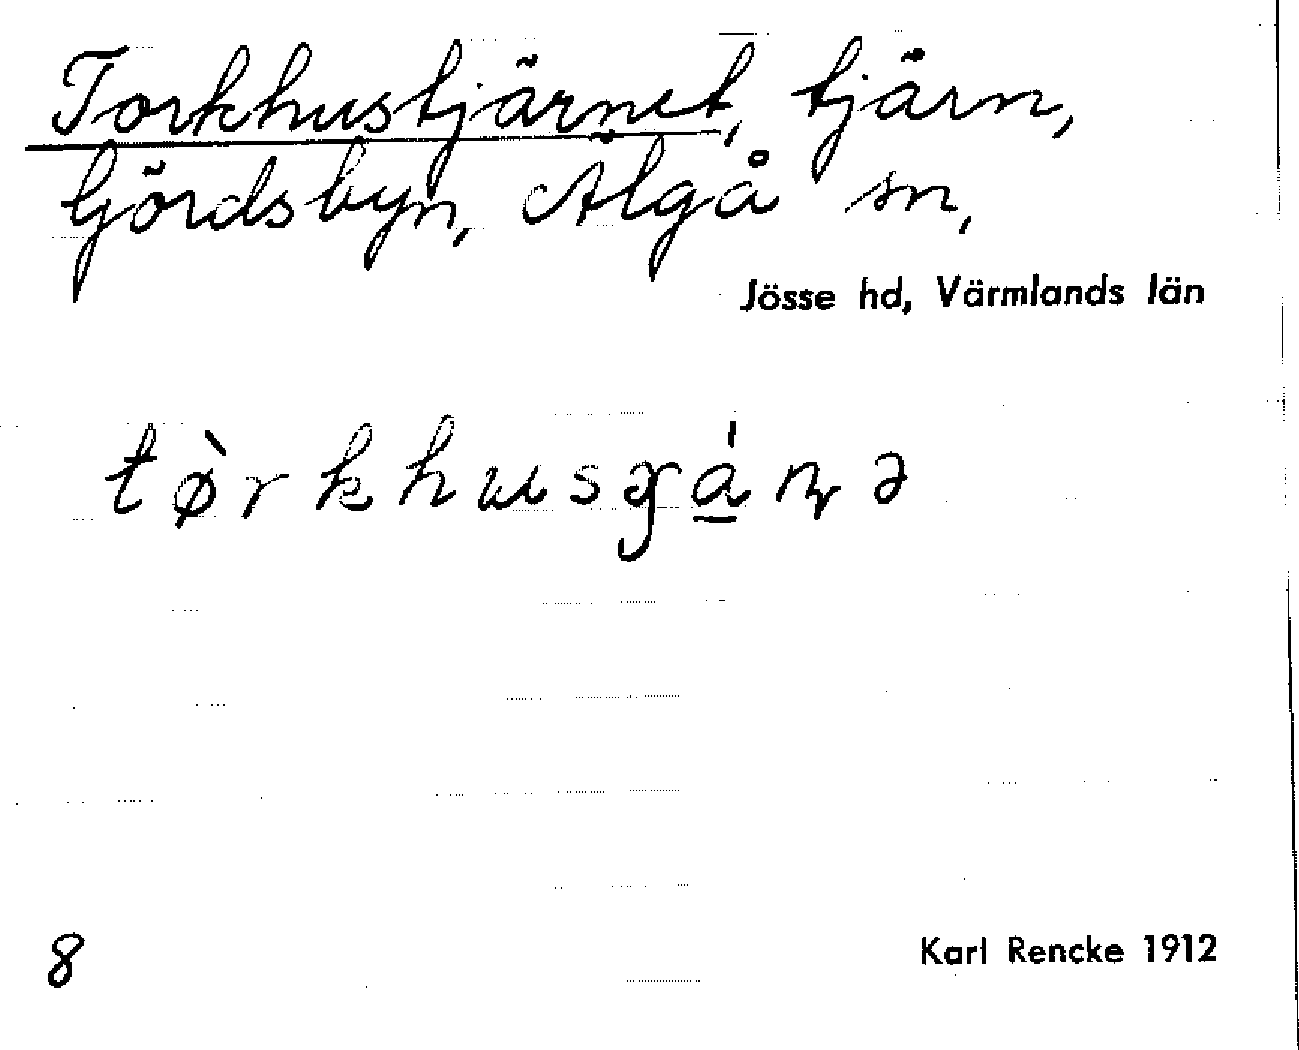 Torkhustjärnet, tjärn,
Gördsbyn, Älgå sn,
Jösse hd, Värmlands län
8
Karl Rencke 1912